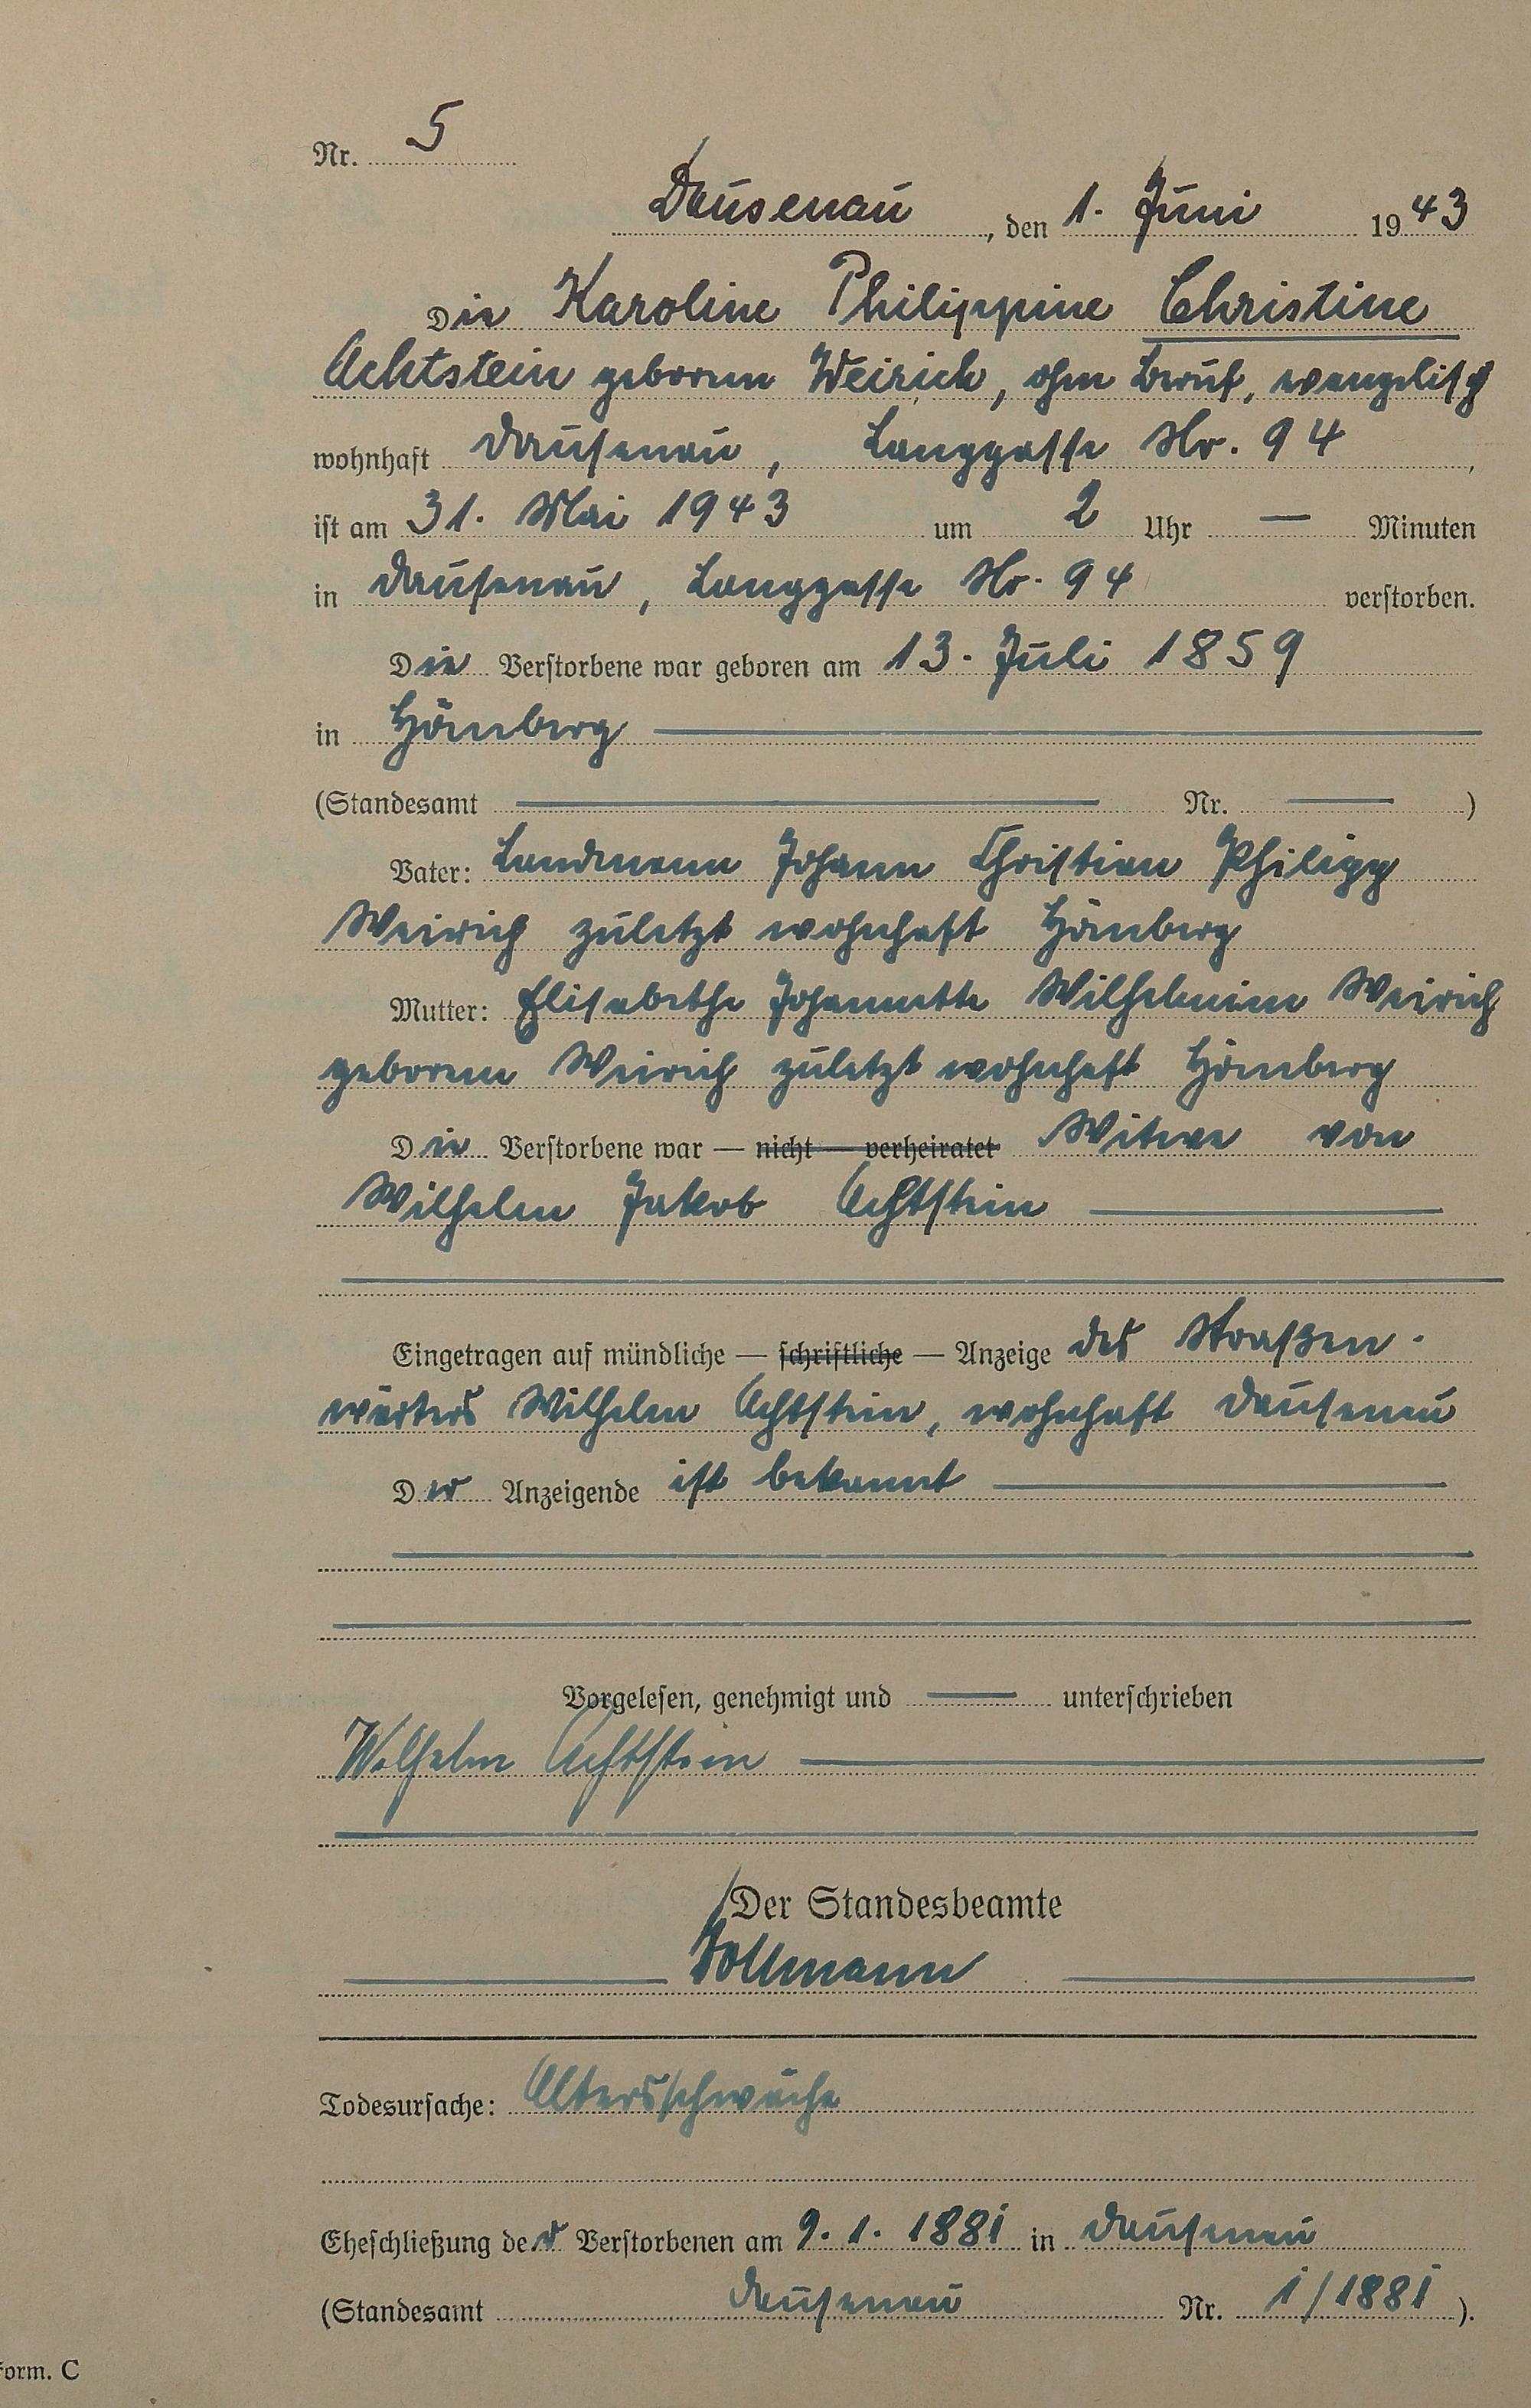 Nr. 5
Dausenau, den 1. Juni 1943
Die Karoline Philippine Christine
Achtstein geborene Weirich, ohne Beruf, evangelisch
wohnhaft Dausenau, Langgasse Nr. 94,
ist am 31. Mai 1943 um 2 Uhr — Minuten
in Dausenau, Langgasse Nr. 94 verstorben.
Die Verstorbene war geboren am 13. Juli 1859
in Hömberg
(Standesamt — Nr. — )
Vater: Landmann Johann Christian Philipp
Weirich zuletzt wohnhaft Hömberg
Mutter: Elisabethe Johannette Wilhelmine Weirich
geborene Weirich zuletzt wohnhaft Hömberg
Die Verstorbene war — nicht — verheiratet Witwe von
Wilhelm Jakob Achtstein
Eingetragen auf mündliche — schriftliche — Anzeige des Straßen-
wärters Wilhelm Achtstein, wohnhaft Dausenau
Der Anzeigende ist bekannt
Vorgelesen, genehmigt und — unterschrieben
Wilhelm Achtstein
Der Standesbeamte
Todesursache: Altersschwäche
Eheschließung der Verstorbenen am 9. 1. 1881 in Dausenau
(Standesamt Dausenau Nr. 1/1881).
Form. C